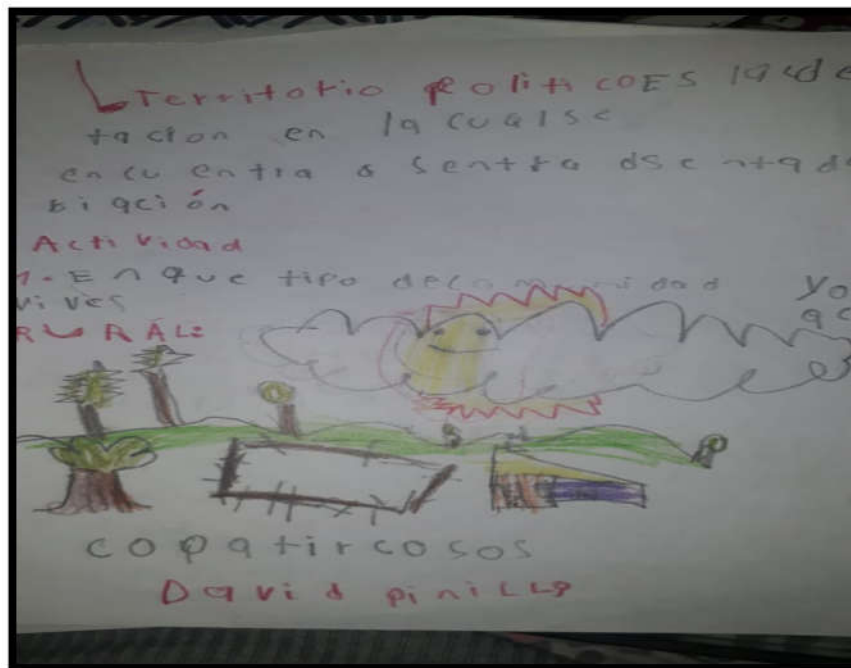 Territorio politicoES la de
tacion en la cualse
encuentra o sentra dsentada
sigción
Actividad
1. En que tipo decomunidad
vives
yo
RURÁL:
copatircosos
David piniLLa